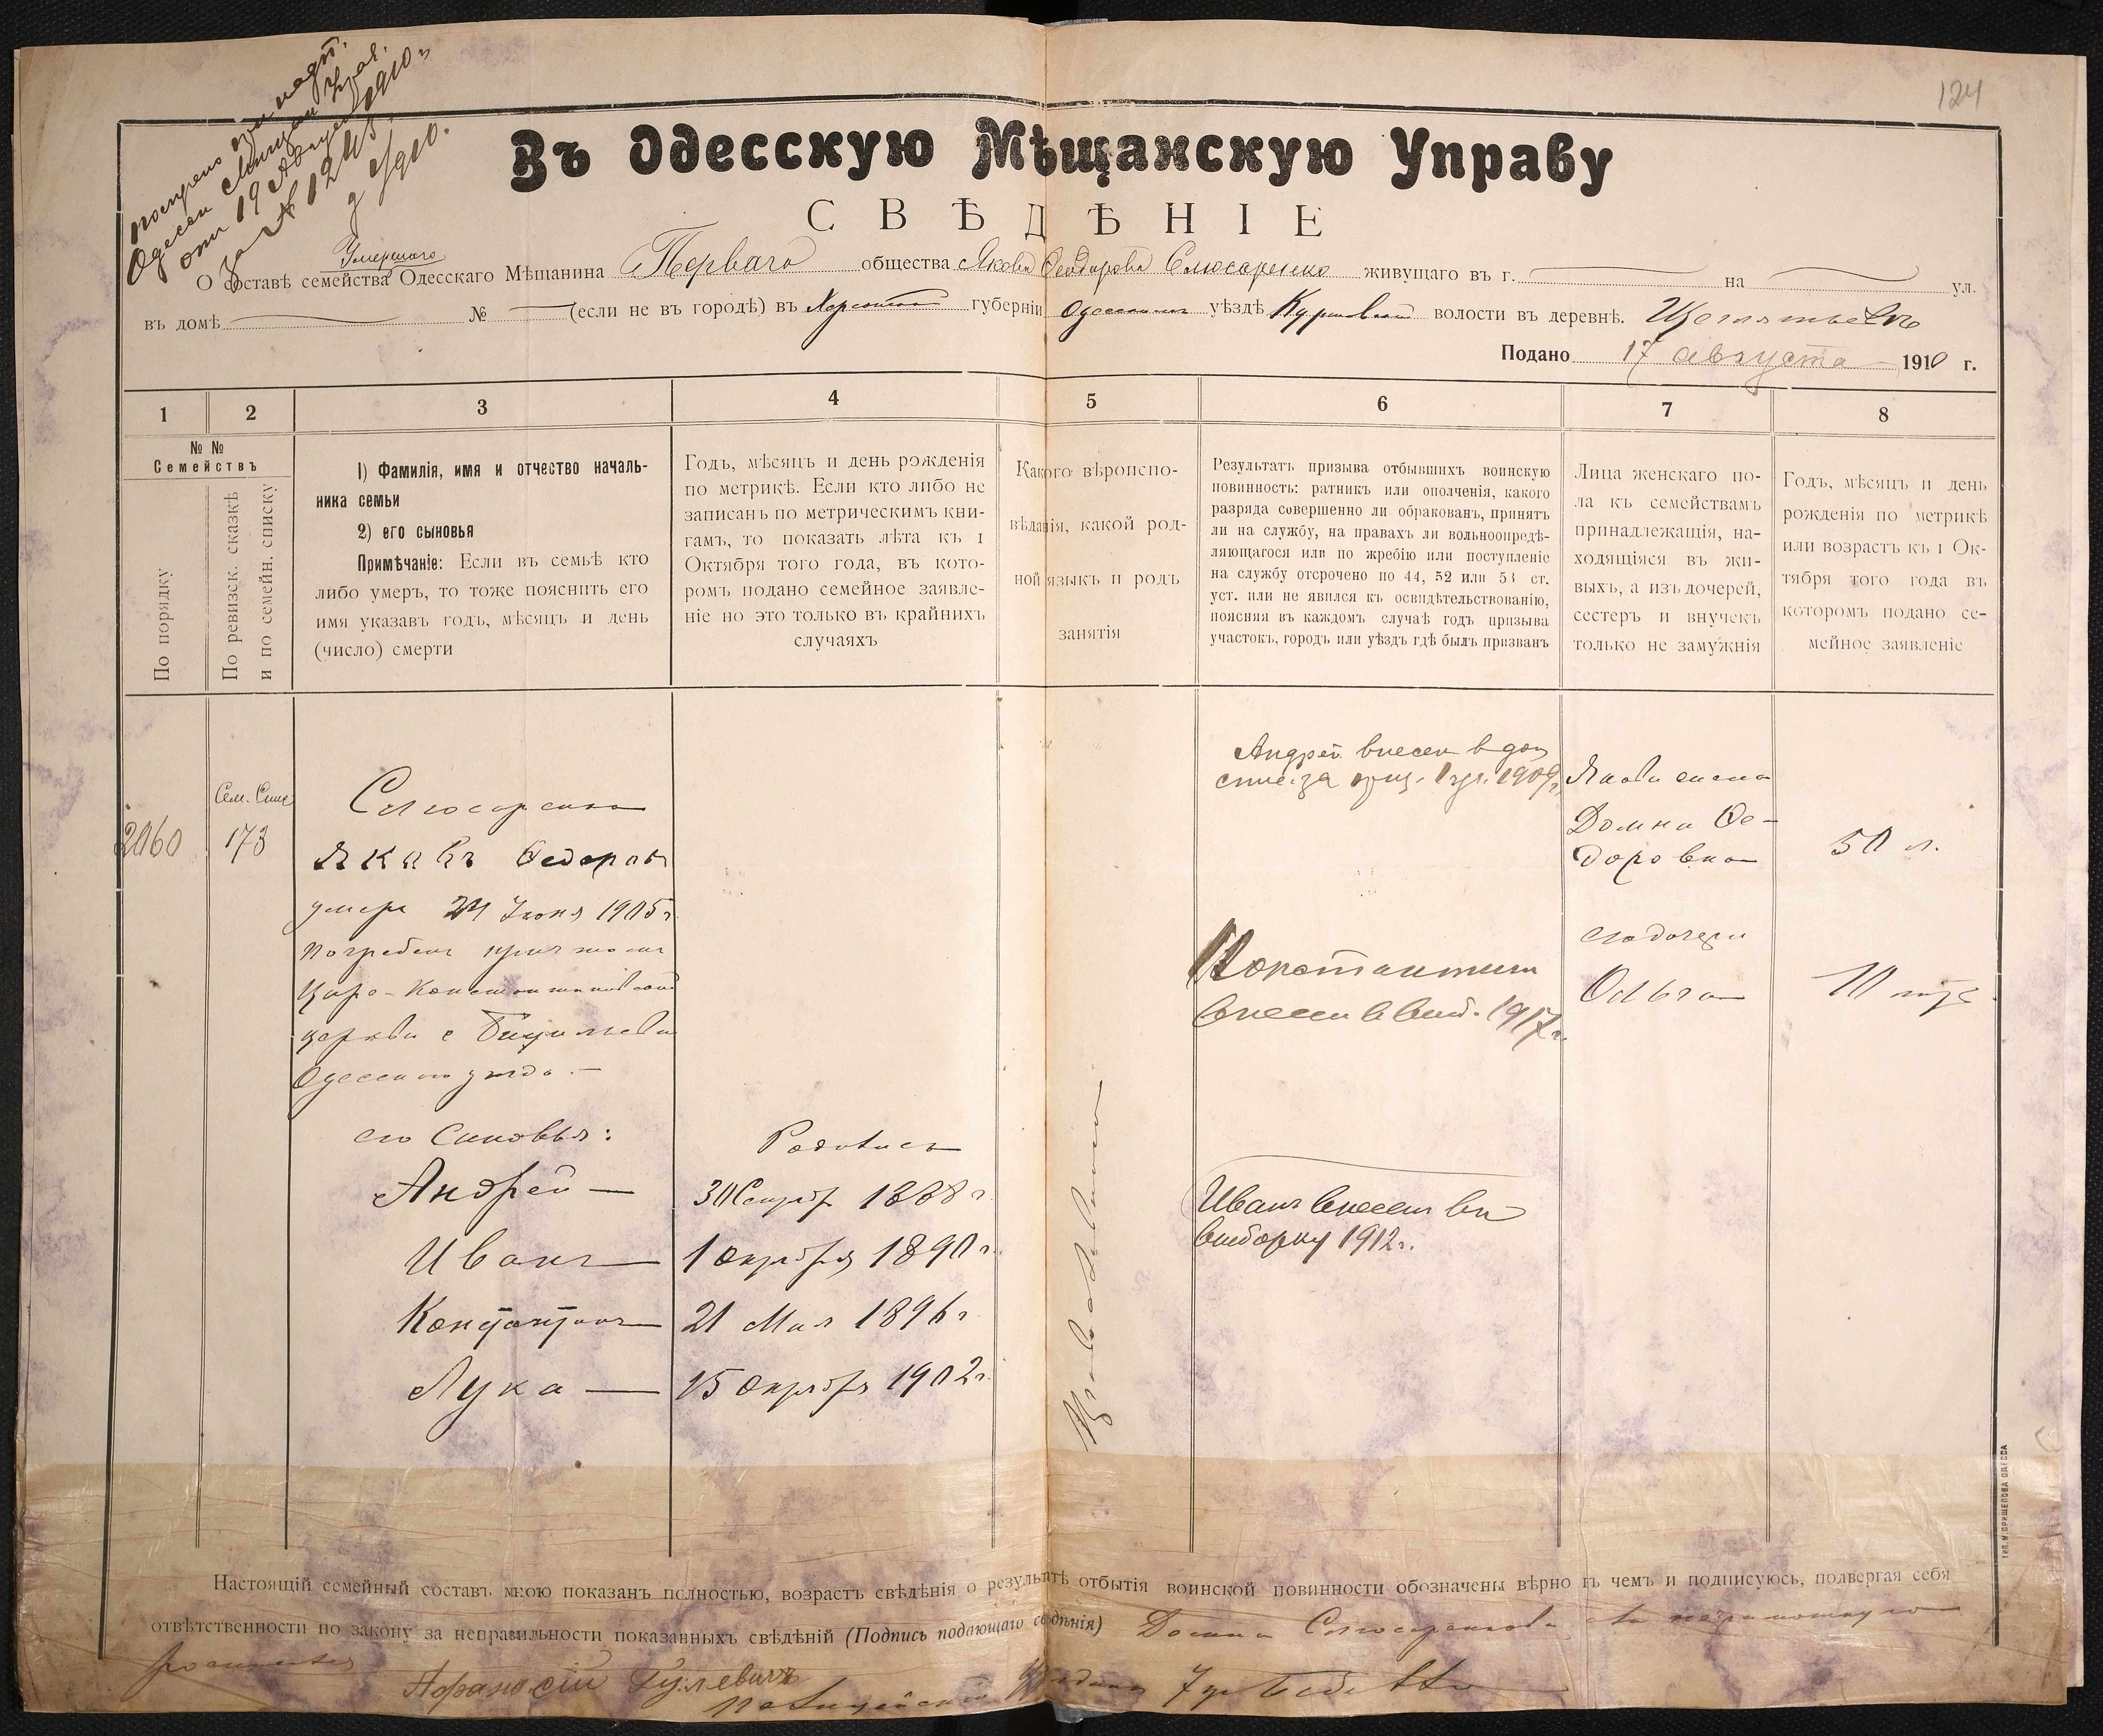 124
Въ Одесскую Мѣщанскую Управу
СВѢДѢНІЕ
Умершаго
О составѣ семейства Одесскаго Мѣщанина Перваго общества Якова Феодорова Слюсаренко живущаго въ г. на ул.
въ домѣ № (если не въ городѣ) въ Херсонской губерніи Одесскомъ уѣздѣ волости въ деревнѣ.
Подано 17 августа 1910 г.
1 2 3 4 5 6 7 8
№ №
Семействъ
По порядку
По ревизск. сказкѣ
и по семейн. списку
1) Фамилія, имя и отчество началь-
ника семьи
2) его сыновья
Примѣчаніе: Если въ семьѣ кто
либо умеръ, то тоже пояснить его
имя указавъ годъ, мѣсяцъ и день
(число) смерти
Годъ, мѣсяцъ и день рожденія
по метрикѣ. Если кто либо не
записанъ по метрическимъ кни-
гамъ, то показать лѣта къ 1
Октября того года, въ кото-
ромъ подано семейное заявле-
ніе но это только въ крайнихъ
случаяхъ
Какого вѣроиспо-
вѣданія, какой род-
ной языкъ и родъ
занятія
Результатъ призыва отбывшихъ воинскую
повинность: ратникъ или ополченія, какого
разряда совершенно ли обракованъ, принятъ
ли на службу, на правахъ ли вольноопредѣ-
ляющагося или по жребію или поступленіе
на службу отсрочено по 44, 52 или 53 ст.
уст. или не явился къ освидѣтельствованію,
поясняя въ каждомъ случаѣ годъ призыва
участокъ, городъ или уѣздъ гдѣ былъ призванъ
Лица женскаго по-
ла къ семействамъ
принадлежащія, на-
ходящіяся въ жи-
выхъ, а изъ дочерей,
сестеръ и внучекъ
только не замужнія
Годъ, мѣсяцъ и день
рожденія по метрикѣ
или возрастъ къ 1 Ок-
тября того года въ
которомъ подано се-
мейное заявленіе
2060
Сем. Спис
173
Слюсаренко
Яковъ Федоровъ
умеръ 24 Іюня 1905 г.
погребенъ при
Царе-Константиновской
церкви с
Одесскаго уѣзда.
его Сыновья:
Андрей
Иванъ
Константинъ
Лука
Родились
30 Сентяб 1888 г.
1 Октября 1890 г.
21 Мая 1896 г.
15 Октября 1902 г.
Православнаго
Андрей внесен в доп
1909 г.
Константинъ
внесен в выб. 1917 г.
Иванъ внесенъ въ
выборку 1912 г.
Якова жена
Домна Фе-
доровна
50 л.
его дочери
Ольга
10 лѣтъ
Настоящій семейный составъ мною показанъ полностью, возрастъ свѣдѣнія о результатѣ отбытія воинской повинности обозначены вѣрно въ чемъ и подписуюсь, подвергая себя
отвѣтственности по закону за неправильности показанныхъ свѣдѣній (Подпись подающаго свѣдѣнія) Домна Слюсаренкова а за неграмотную
Афанасій Гулевичъ
Полицейскій Урядникъ
ТИП. М. ПРИЩЕПОВА ОДЕССА